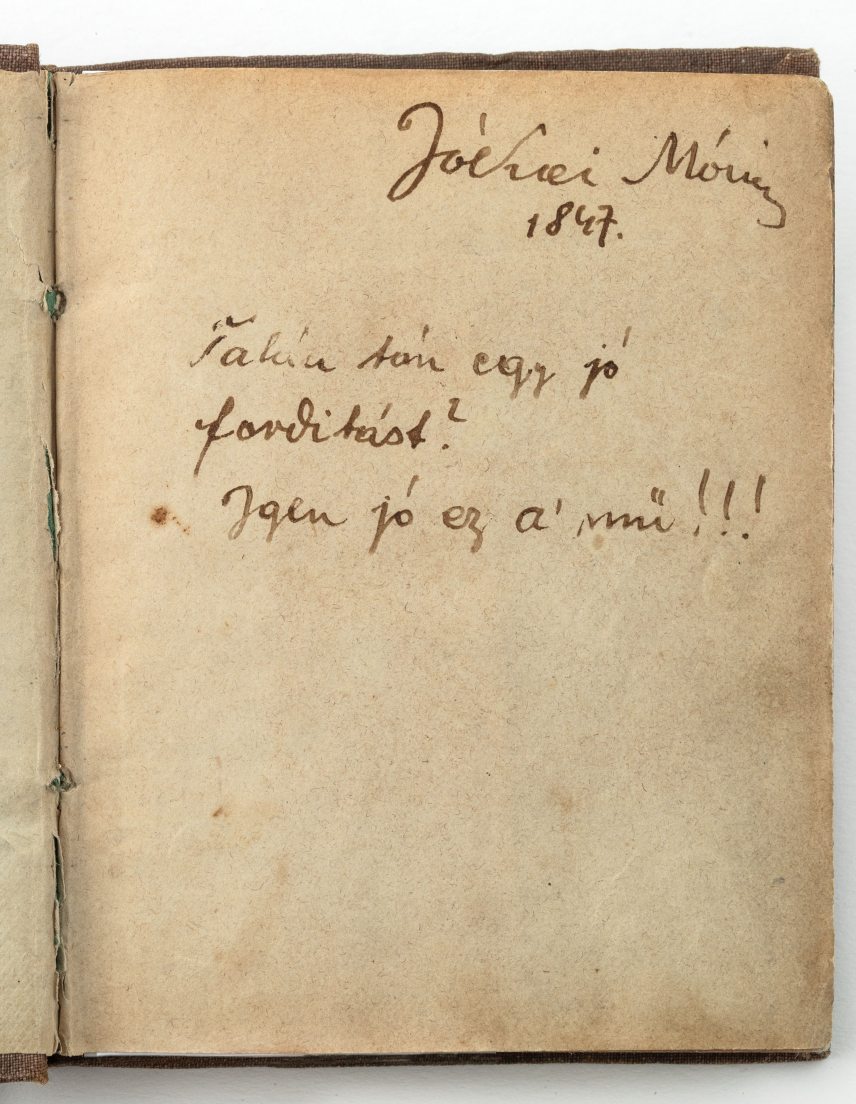 Jókai Móricz
1847.
Talán tán egy jó
forditást?
Igen jó ez a' mű!!!